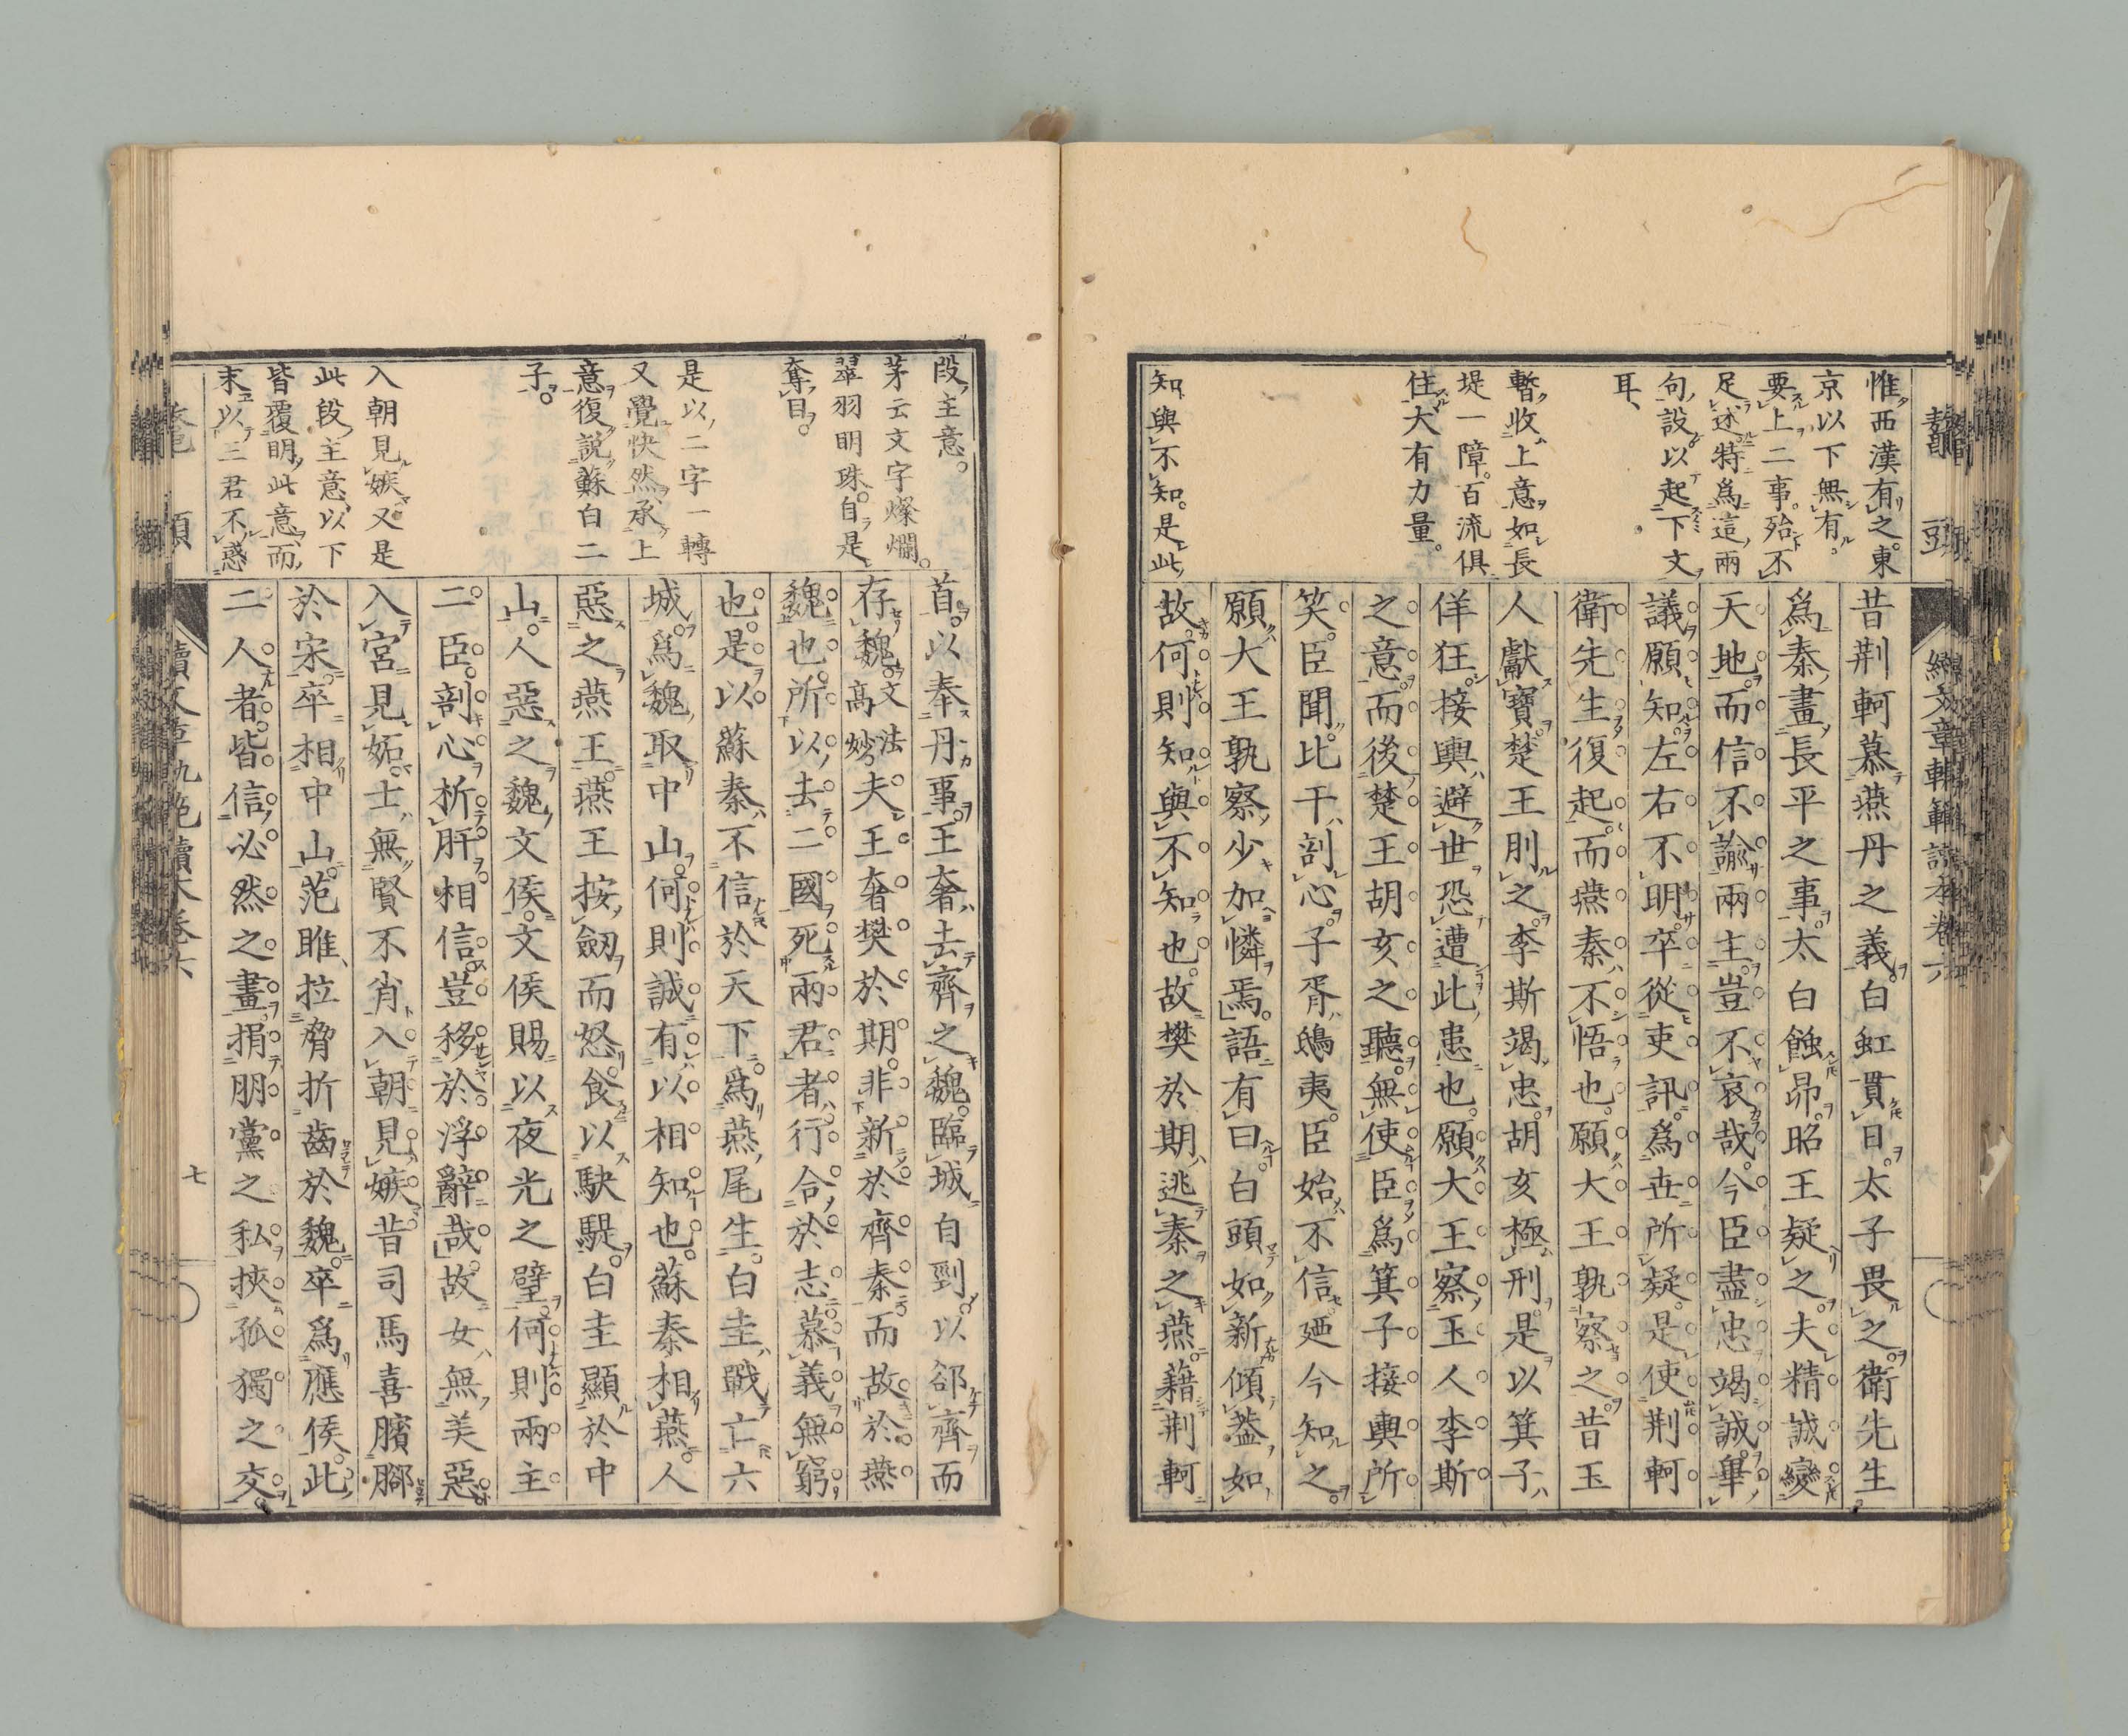 惟西漢有之東
京以下無有
要上二事殆不
足述特爲這兩
句設以起下文
耳
暫收上意如長
堤一障百流俱
住大有力量
知與不知是此
昔荆軻慕燕丹之義白虹貫日太子畏之衛先生
爲秦畫長平之事太白蝕昴昭王疑之夫精誠變
天地而信不諭兩主豈不哀哉今臣盡忠竭誠畢
議願知左右不明卒從吏訊爲世所疑是使荆軻
衛先生復起而燕秦不悟也願大王孰察之昔玉
人獻寶楚王刖之李斯竭忠胡亥極刑是以箕子
佯狂接輿避世恐遭此患也願大王察玉人李斯
之意而後楚王胡亥之聽無使臣爲箕子接輿所
笑臣聞比干剖心子胥鴟夷臣始不信廼今知之
願大王孰察少加憐焉語有曰白頭如新傾蓋如
故何則知與不知也故樊於期逃秦之燕藉荆軻
段主意
茅云文字燦爛
翠羽明珠自是
奪目
是以二字一轉
又覺快然承上
意復説蘇白二
子
入朝見嫉又是
此段主意以下
皆覆明此意而
末以三君不惑
首以奉丹事王奢去齊之魏臨城自剄以郤齊而
存魏文法高妙夫王奢樊於期非新於齊秦而故於燕
魏也所以去二國死兩君者行合於志慕義無窮
也是以蘇秦不信於天下爲燕尾生白圭戰亡六
城爲魏取中山何則誠有以相知也蘇秦相燕人
惡之燕王燕王按劒而怒食以駃騠白圭顯於中
山人惡之魏文侯文侯賜以夜光之璧何則兩主
二臣剖心析肝相信豈移於浮辭哉故女無美惡
入宮見妬士無賢不肖入朝見嫉昔司馬喜臏脚
於宋卒相中山范雎拉脅折齒於魏卒爲應侯此
二人者皆信必然之畫捐朋黨之私挾孤獨之交
七